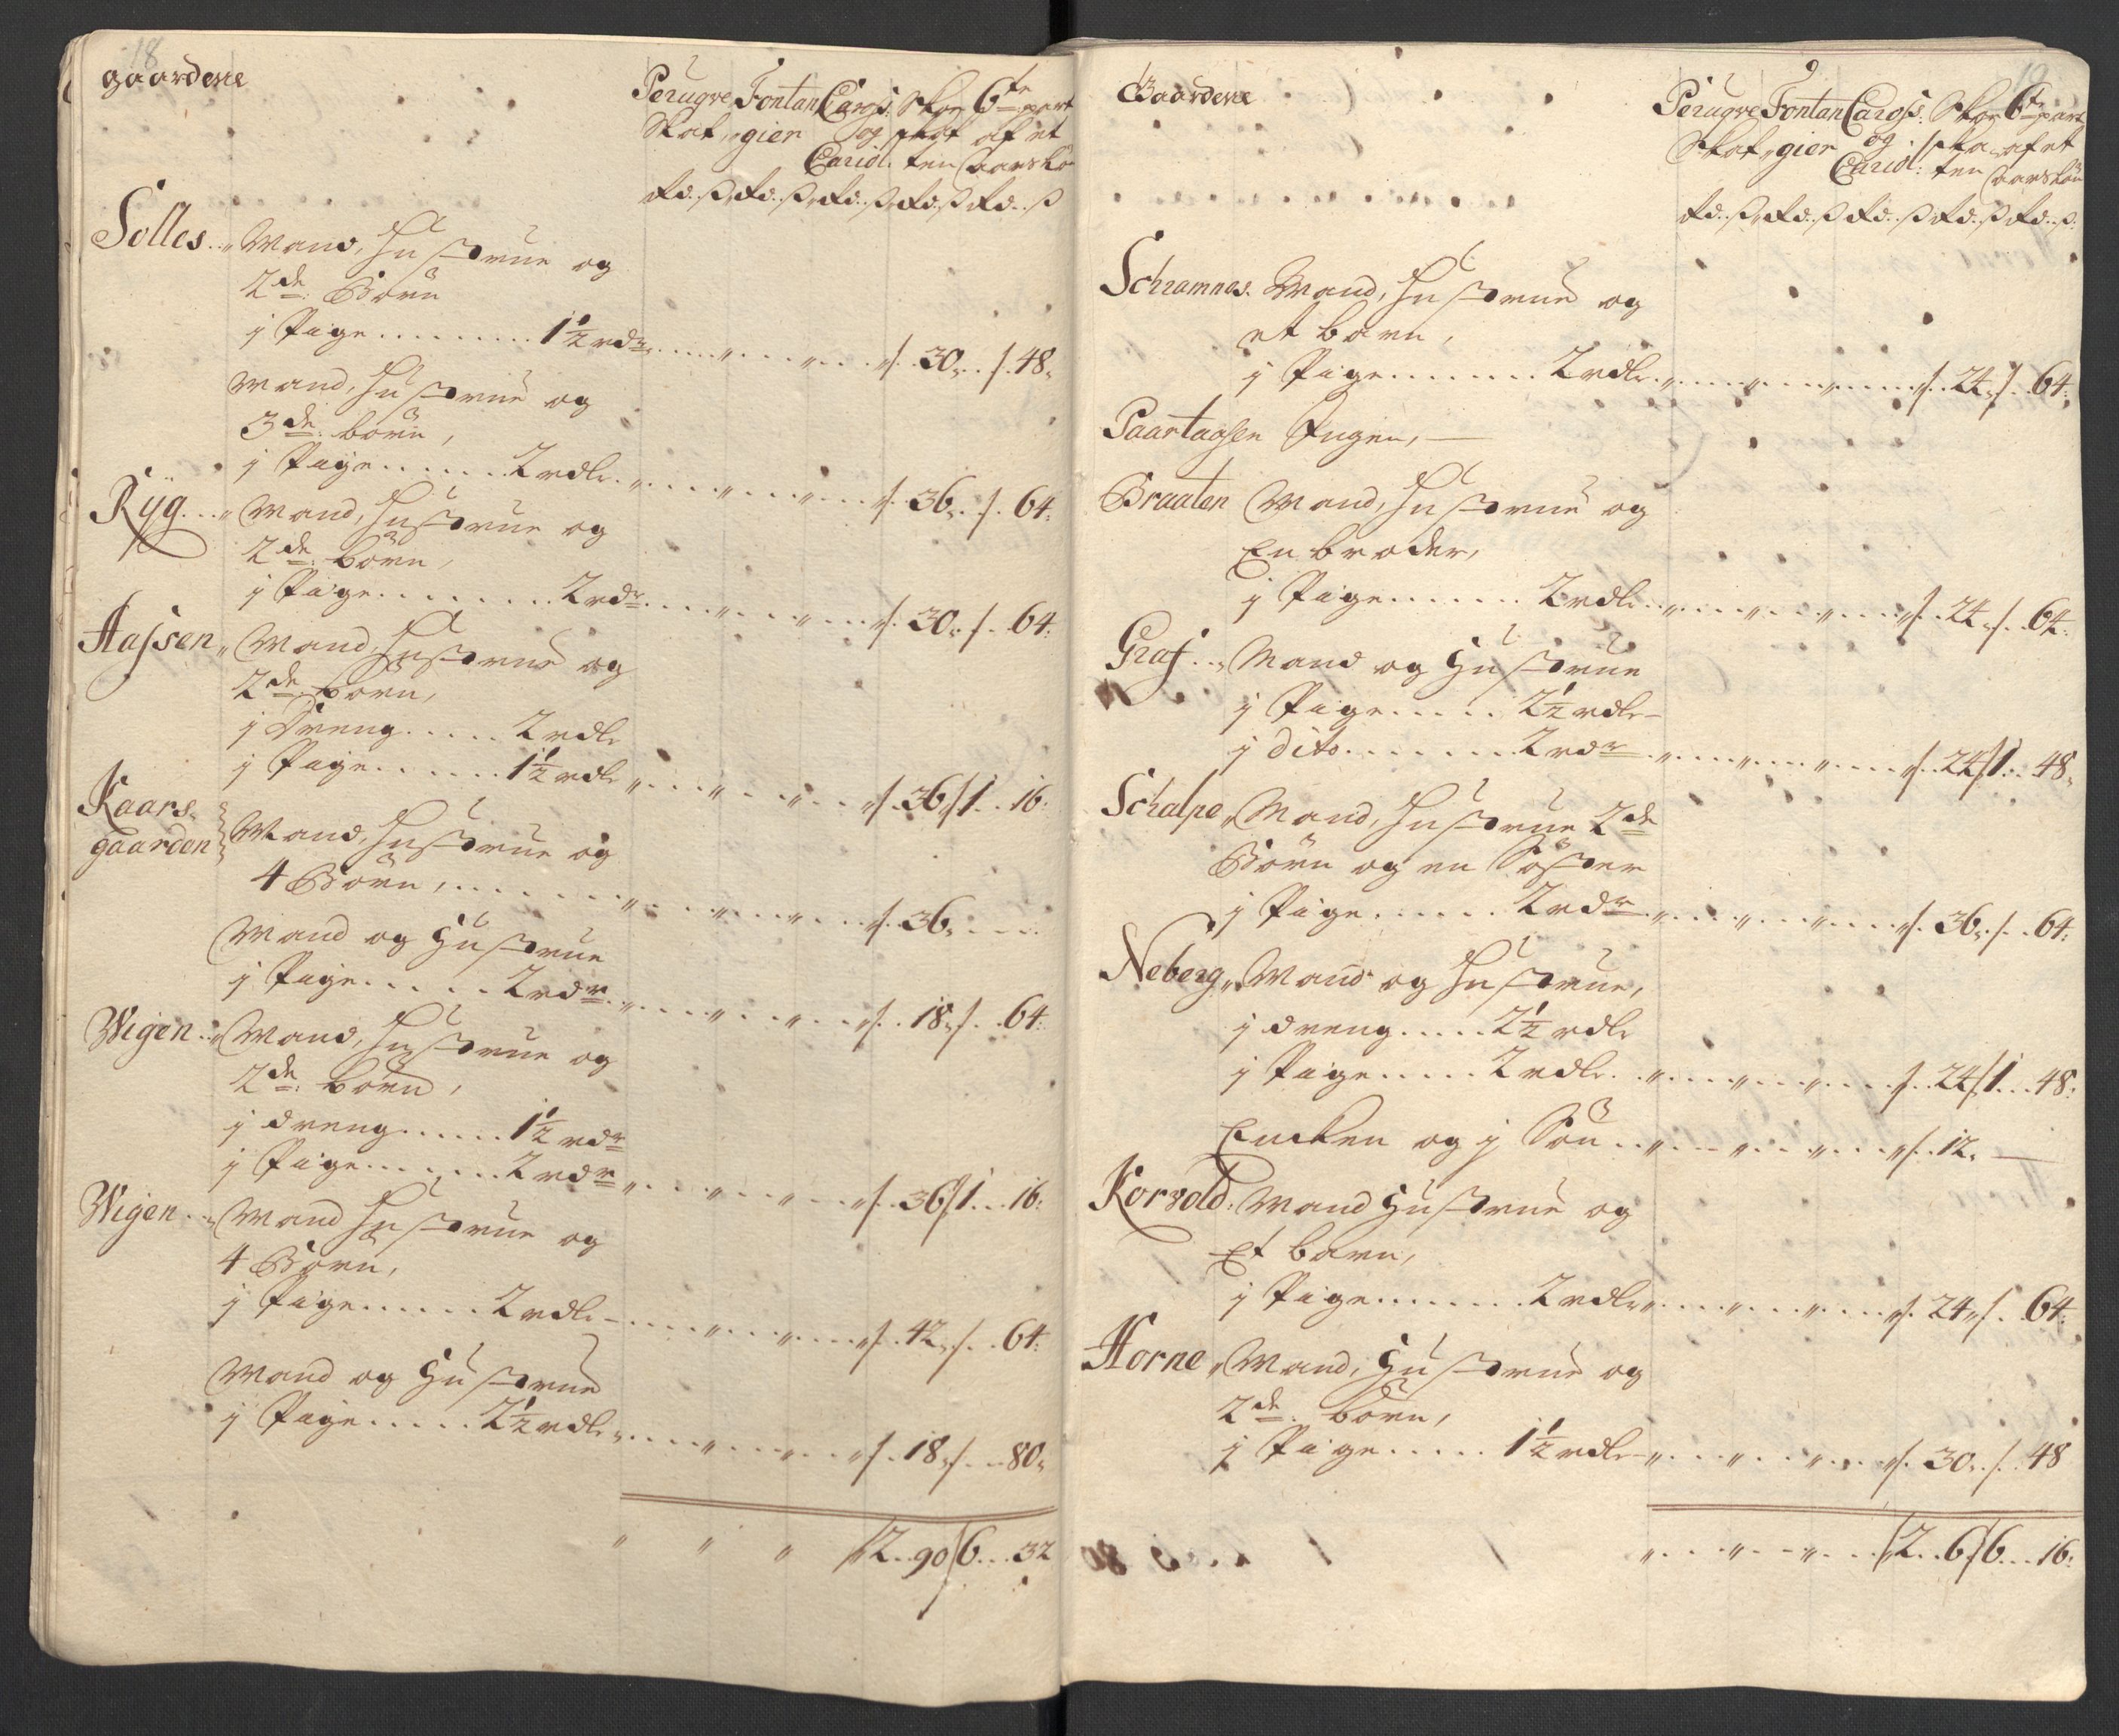 18
gaardene
Perugve Fontan Caross: Skoe 6te part
Skat, gier og skat af et
Cariol: ten Aarsløn
Rd..ß, Rd..ß, Rd..ß, Rd..ß Rd..ß
Solles.. Mand, Hustrue og
2de: Børn
j Pige......... 1½ rdr......../. 30../. 48.
Mand, Hustrue og
3de: børn,
j Pige...... 2 rdlr......../. 36../. 64:
Ryg... Mand, Hustrue og
2de: børn,
j Pige......... 2 rdr......../. 30./. 64:
Aassen, Mand, Hustrue og
2de børn,
j Dreng..... 2 rdlr
j Pige...... 1½ rdlr......../. 36/1.. 16:
Kaars-
gaarden Mand, Hustrue og
4 Børn,......../. 36.....
Mand og Hustrue
j Pige...... 2 rdr......../. 18./. .64:
Wigen.. Mand, Hustrue og
2de: børn,
j dreng...... 1½ rdr
j Pige....... 2 rdr......../. 36/1... 16:
Wigen.. Mand Hustrue og
4 Børn,
j Pige...... 2 rdlr......../. 42./. .64:
Mand og Hustrue
j Pige..... 2½ rdlr......../. 18./. ..80.
" " " /2..90/6... 32
19
9
Gaardene
Perugve Fontan Caross: Skoe 6te part
Skat, gier og ska af et
Cariol: ten Aarsløn
Rd..ß, Rd..ß Rd..ß Rd..ß Rd..ß:
Schramnes. Mand, Hustrue og
et barn,
j Pige....... 2 rdlr......../. 24./. 64:
Paartaasen Ingen, —
Braaten Mand, Hustrue og
En broder,
j Pige....... 2 rdlr......../. 24./. .64:
Graf.. Mand og Hustrue
j Pige..... 2½ rdlr
j dito........ 2 rdr......../. 24/1.. 48.
Schalpe, Mand, Hustrue 2de
Børn og en Søster
j Pige...... 2 rdr......../. 36./. .64:
Neberg, Mand og Hustrue,
j dreng..... 2½ rdlr
j Pige..... 2 rdlr......../. 24/1... 48:
Encken og j Søn......../. 12. —
Korvold: Mand Hustrue og
Et barn,
j Pige....... 2 rdlr......../. 24./. .64:
Horne, Mand, Hustrue og
2de. børn,
j Pige..... 1½ rdlr......../. 30../. 48
......../2..6/6... 16: